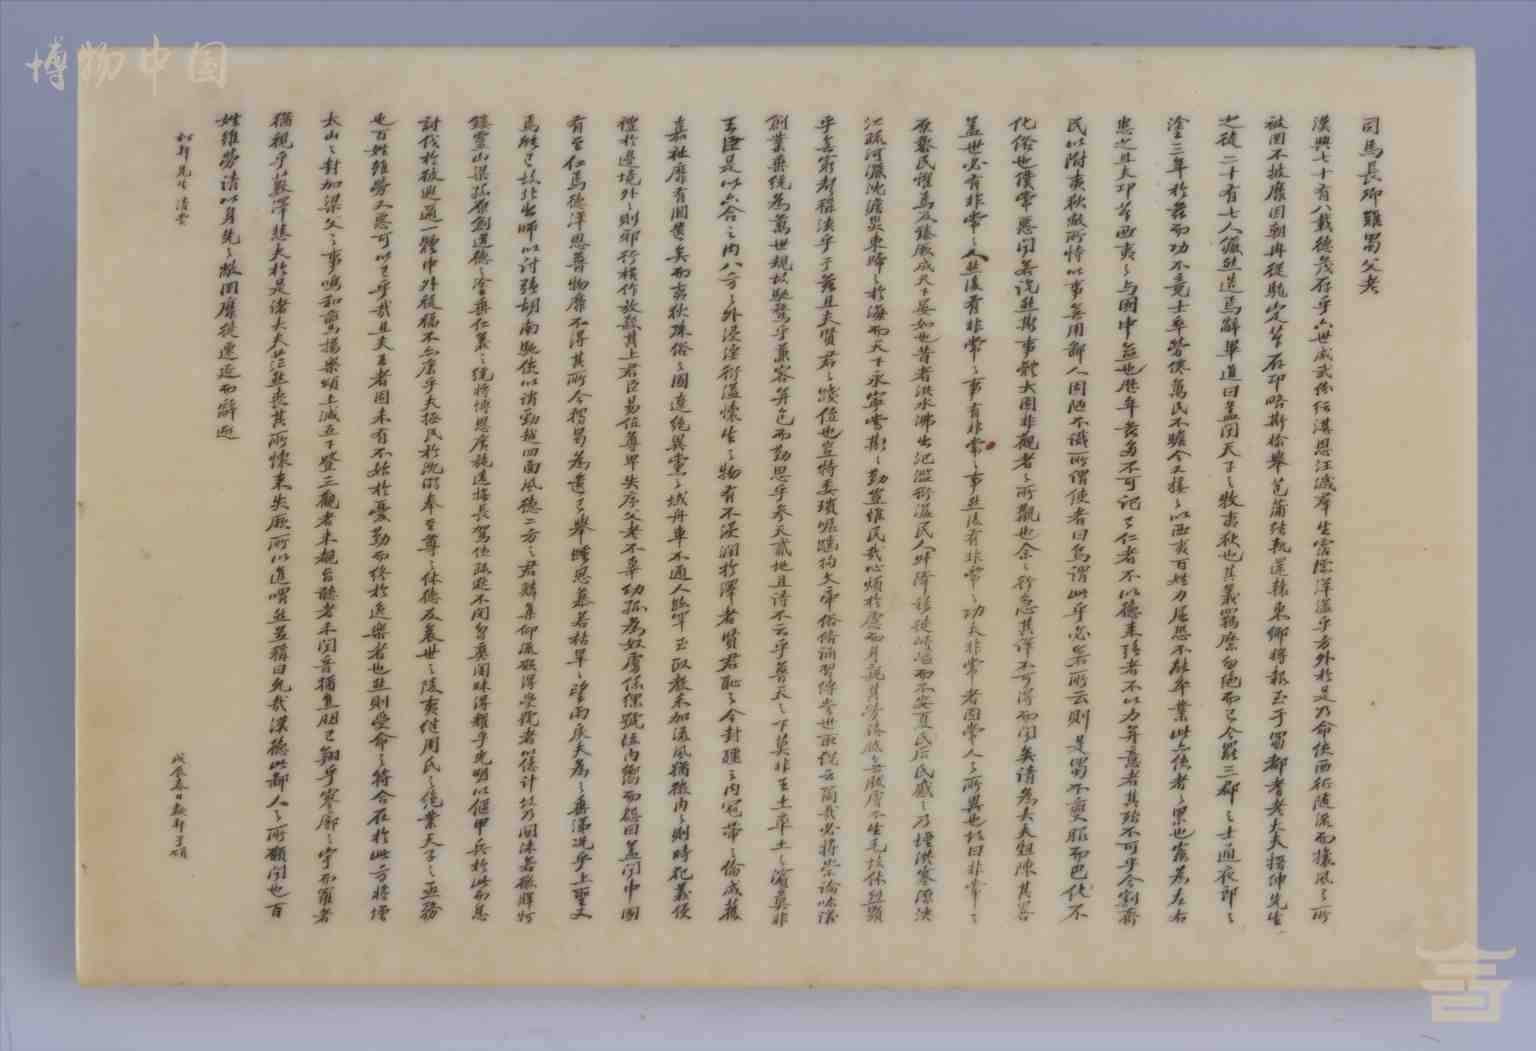 司馬長卿難蜀父老
漢興七十有八載德茂存乎六世威武紛紜湛恩汪濊羣生霑濡洋溢乎方外於是乃命使西征隨流而攘風之所
被罔不披靡因朝冉從駹定筰存邛略斯榆舉苞蒲結軌還轅東鄉將報至于蜀都耆老大夫搢紳先生
之徒二十有七人儼然造焉辭畢進曰蓋聞天子之牧夷狄也其義羈縻勿絕而已今罷三郡之士通夜郎之
塗三年於茲而功不竟士卒勞倦萬民不贍今又接之以西夷百姓力屈恐不能卒業此亦使者之累也竊為左右
患之且夫邛筰西夷之与國中並也歷年茲多不可記已仁者不以德來強者不以力并意者其殆不可乎今割齊
民以附夷狄敝所恃以事無用鄙人固陋不識所謂使者曰烏謂此乎必若所云則是蜀不變服而巴化不
化俗也僕常惡聞若說然斯事體大固非觀者之所覯也余之行急其詳不可得而聞矣請為大夫粗陳其略
蓋世必有非常之人然後有非常之事有非常之事然後有非常之功夫非常者固常人之所異也故曰非常之
原黎民懼焉及臻厥成天下晏如也昔者洪水沸出氾濫衍溢民人升降移徙崎嶇而不安夏后氏慼之乃堙洪塞源決
江疏河灑沈澹災東歸之於海而天下永寧當斯之勤豈惟民哉心煩於慮而身親其勞躬胝無胈膚不生毛故休烈顯
乎無窮聲稱浹乎于茲且夫賢君之踐位也豈特委瑣喔齪拘文牽俗循誦習傳當世取說云爾哉必將崇論吰議
創業垂統為萬世規故馳騖乎兼容并包而勤思乎參天貳地且詩不云乎普天之下莫非王土率土之濱莫非
王臣是以六合之內八方之外浸淫衍溢懷生之物有不浸潤於澤者賢君恥之今封疆之內冠帶之倫咸獲
嘉祉靡有闕遺矣而夷狄殊俗之國遼絕異黨之域舟車不通人跡罕至政教未加流風猶微內之則時犯義侵
禮於邊境外之則邪行橫作放殺其上君臣易位尊卑失序父老不辜幼孤為奴虜係縲號泣內嚮而怨曰蓋聞中國
有至仁焉德洋恩普物靡不得其所今獨曷為遺己舉踵思慕若枯旱之望雨戾夫為之垂涕況乎上聖又
焉能已故北出師以討強胡南馳使以誚勁越四面風德二方之君鱗集仰流願得受號者以億計故乃關沫若徼牂牁
鏤靈山梁孫原創道德之塗垂仁義之統將博恩廣施遠撫長駕使疏逖不閉曶爽闇昧得耀乎光明以偃甲兵於此而息
討伐於彼遐邇一體中外禔福不亦康乎夫拯民於沈溺奉至尊之休德反衰世之陵夷繼周氏之絕業天子之亟務
也百姓雖勞又惡可以已乎哉且夫王者固未有不始於憂勤而終於逸樂者也然則受命之符合在於此方將增
太山之封加梁父之事鳴和鸞揚樂頌上減五下登三觀者未覩旨聽者未聞音猶焦朋已翔乎寥廓之宇而羅者
猶視乎藪澤悲夫於是諸大夫茫然喪其所懷來失厥所以進喟然並稱曰允哉漢德此鄙人之所願聞也百
姓雖勞請以身先之敞罔靡徙遷延而辭避
如卿先生清賞
戊辰春日于碩
博物中国